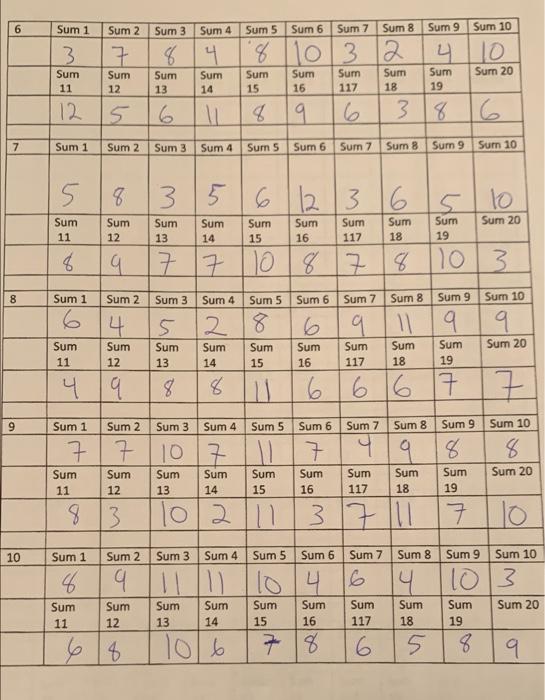 6 Sum 1 Sum 2 Sum 3 Sum 4 Sum 5 Sum 6 Sum 7 Sum 8 Sum 9 Sum 10
3 7 8 4 8 10 3 2 4 10
Sum Sum Sum Sum Sum Sum Sum Sum Sum Sum 20
11 12 13 14 15 16 117 18 19
12 5 6 11 8 9 6 3 8 6
7 Sum 1 Sum 2 Sum 3 Sum 4 Sum 5 Sum 6 Sum 7 Sum 8 Sum 9 Sum 10
5 8 3 5 6 12 3 6 5 10
Sum Sum Sum Sum Sum Sum Sum Sum Sum Sum 20
11 12 13 14 15 16 117 18 19
8 9 7 7 10 8 7 8 10 3
8 Sum 1 Sum 2 Sum 3 Sum 4 Sum 5 Sum 6 Sum 7 Sum 8 Sum 9 Sum 10
6 4 5 2 8 6 9 11 9 9
Sum Sum Sum Sum Sum Sum Sum Sum Sum Sum 20
11 12 13 14 15 16 117 18 19
4 9 8 8 11 6 6 6 7 7
9 Sum 1 Sum 2 Sum 3 Sum 4 Sum 5 Sum 6 Sum 7 Sum 8 Sum 9 Sum 10
7 7 10 7 11 7 4 9 8 8
Sum Sum Sum Sum Sum Sum Sum Sum Sum Sum 20
11 12 13 14 15 16 117 18 19
8 3 10 2 11 3 7 11 7 10
10 Sum 1 Sum 2 Sum 3 Sum 4 Sum 5 Sum 6 Sum 7 Sum 8 Sum 9 Sum 10
8 9 11 11 10 4 6 4 10 3
Sum Sum Sum Sum Sum Sum Sum Sum Sum Sum 20
11 12 13 14 15 16 117 18 19
6 8 10 6 7 8 6 5 8 9